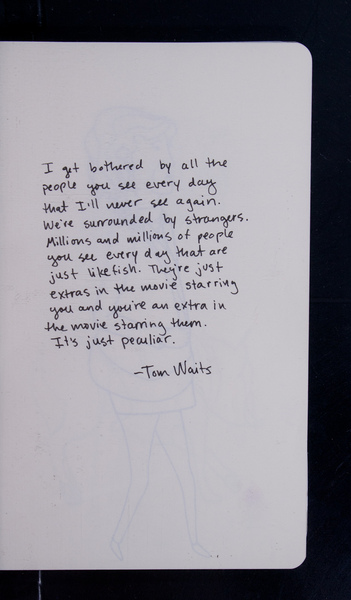 I get bothered by all the
people you see every day
that I'll never see again.
We're surrounded by strangers.
Millions and millions of people
you see every day that are
just like fish. They're just
extras in the movie starring
you and you're an extra in
the movie starring them.
It's just peculiar.
-Tom Waits